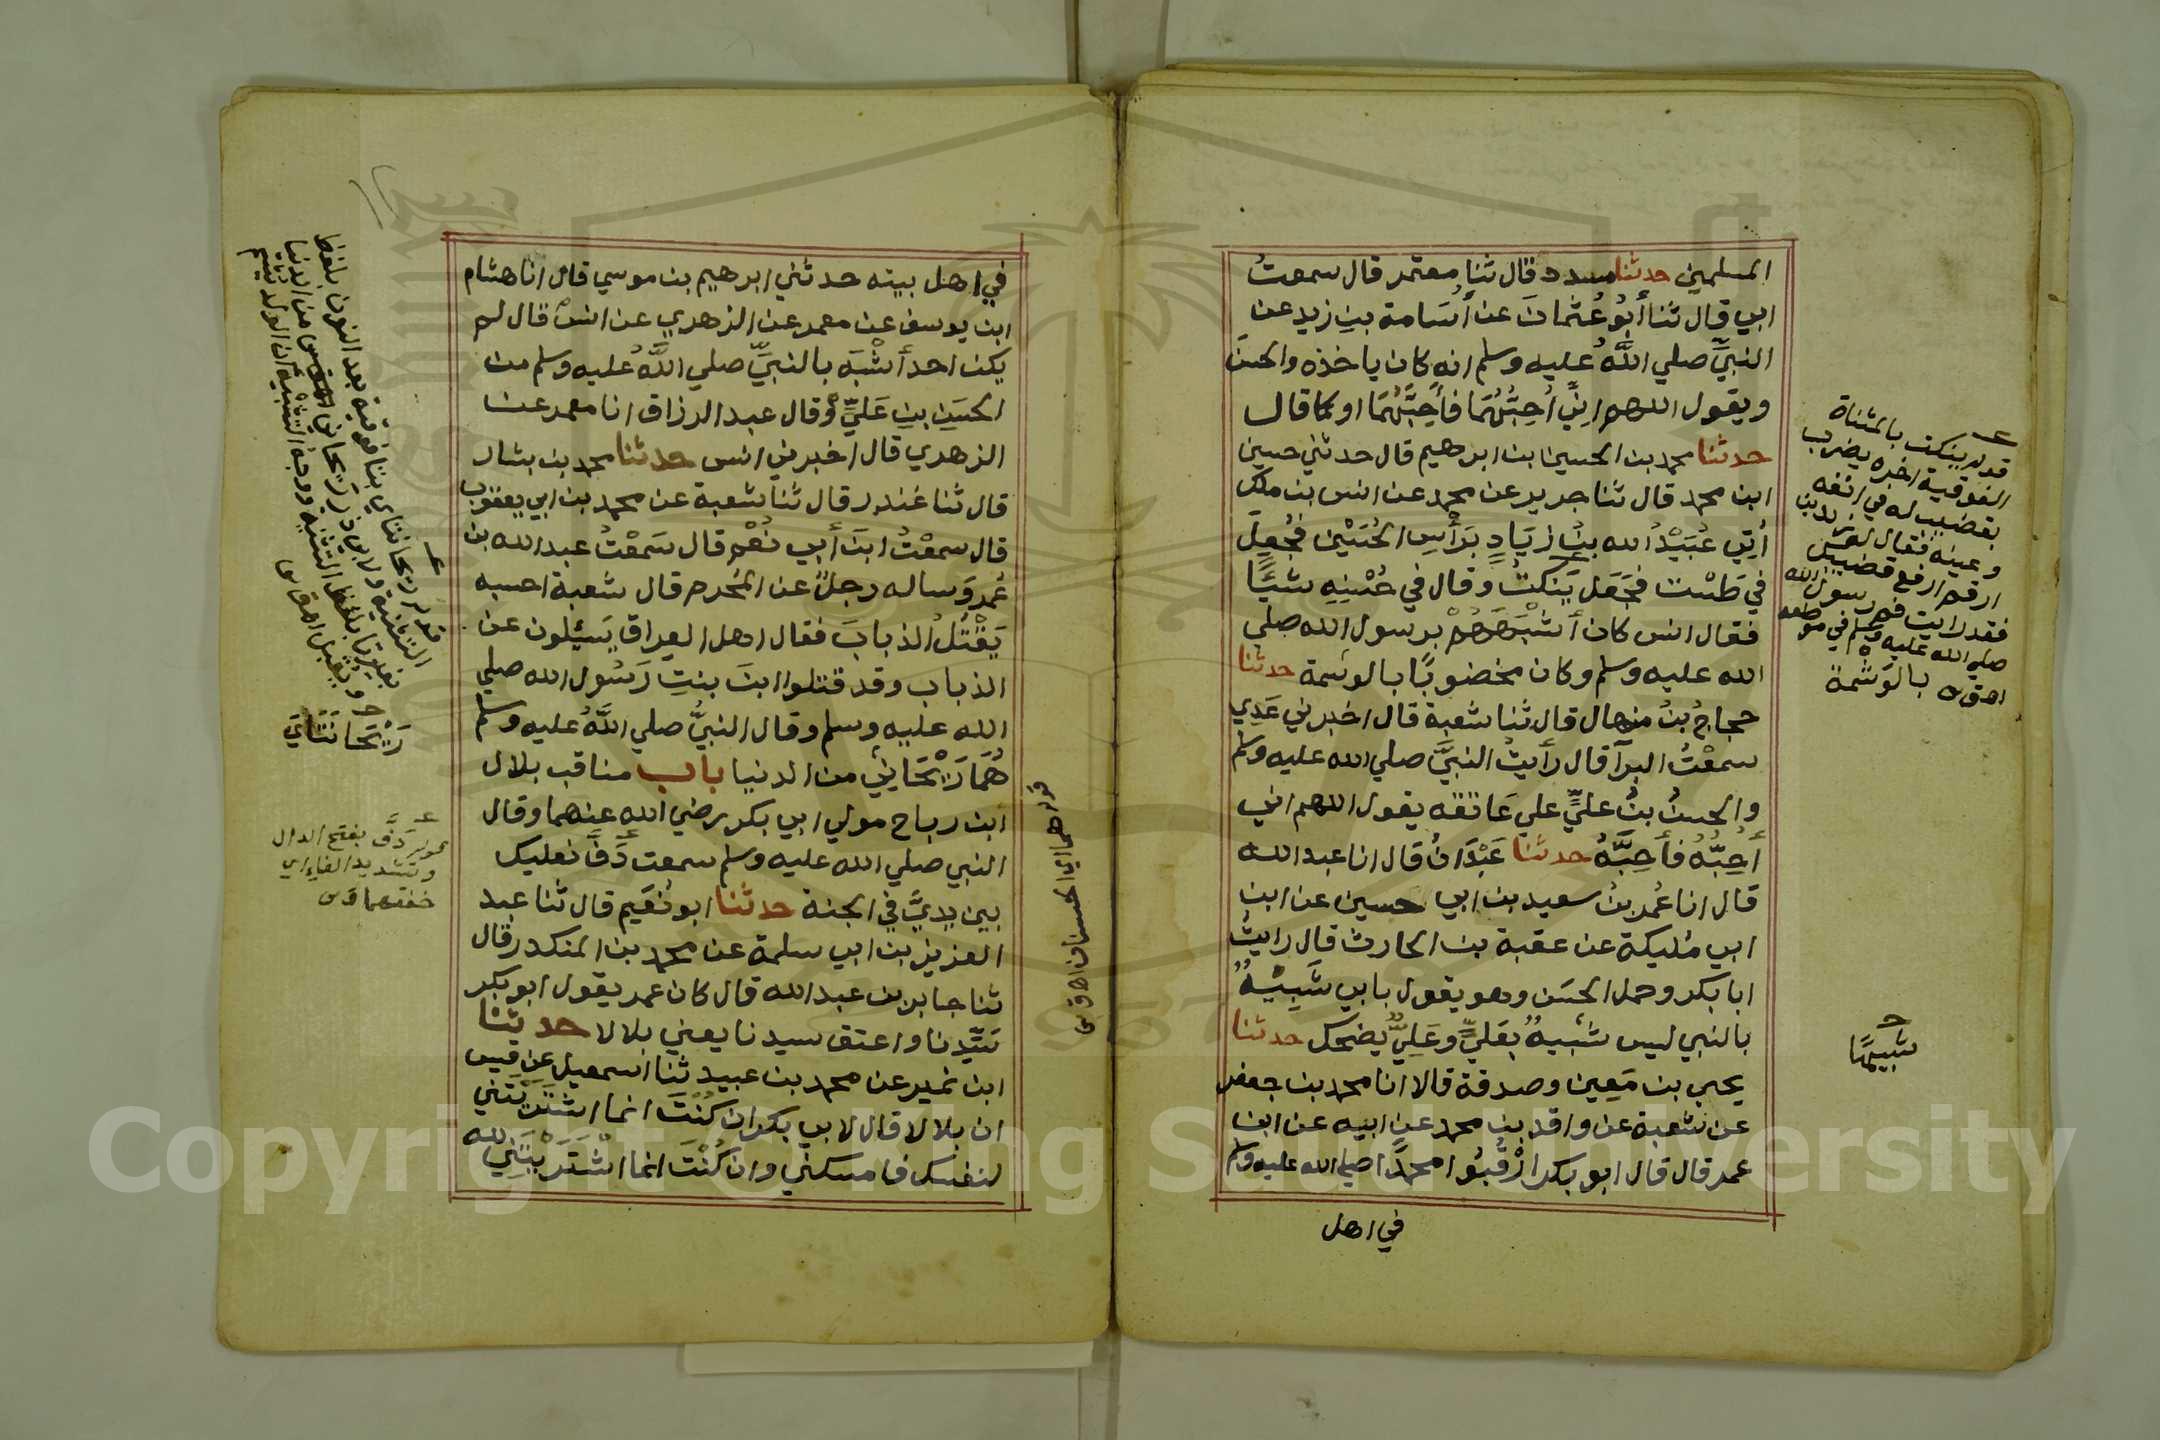 المسلمين حدثنا مسدد قال ثنا معتمر قال سمعتُ
ابي قال ثنا أبُو عُثمانَ عن أُسَامة بنِ زيد عن
النبيِّ صلي اللَّهُ عليه وسلم انه كان ياخذه والحسنَ
ويقول اللهم اِنِّي اُحِبُّهُمَا فأَحِبَّهُمَا او كما قال
حدثنا محمد بن الحسين ابن ابرهيم قال حدثني حسين
ابن محمد قال ثنا جرير عن محمد عن انس بن ملك
اُتِيَ عُبَيْدُ الله بنُ زيَادٍ بَرَأْسِ الحُسَيْن فَجُعِلَ
في طَسْت فجَعَل يَنكتُ وقال في حُسْنِهِ شَيْئًا
فقال انس كان أَشْبَهَهُمْ برسول الله صلي
الله عليه وسلم وكان مخضوبًا بالوسمة حدثنا
حجاجُ بنُ منهال قال ثنا شعبة قال اخبرني عَدِي
سمعْتُ البرآ قال رأيتُ النبيَّ صلي الله عليه وسلم
والحسنُ بنُ عليٍّ علي عَاتقه يقول اللهم اني
أُحِبُّهُ فأَحِبَّهُ حدثنا عَبْدَانُ قال انا عبد الله
قال انا عُمر بنُ سعيد بن ابي حسين عن ابن
ابي مُليكة عن عقبة بن الحارث قال رايتُ
ابا بكر وحمل الحسَن وهو يقول بابي شَبِيْهٌ
بالنبي ليس شبيهٌ بعَليٍّ وعَلِيٌّ يضحك حدثنا
يحيي بن مَعِين وصدقة قالا انا محمد بن جعفر
عن شعبة عن واقد بن محمد عن ابيه عن ابن
عمر قال قال ابو بكر ارْقُبُوا محمدًا صلي الله عليه وسلم
في اهل
قوله ينكت بالمثناة
الفوقية اخره يضرب
بقضيب له في انفه
وعينه فقال له زيد بن
ارقم ارفع قضيبك
فقد رايت فم رسول الله
صلي الله عليه وسلم في موضعه
اهـ ق س بالوَشمة
شبيهًا
في اهل بيته حدثني ابرهيم بن موسي قال انا هشام
ابن يوسف عن معمر عن الزهري عن انس قال لم
يكن احد أشْبَه بالنبيِّ صلي اللَّهُ عليه وسلم من
الحسَنِ بنِ عَليٍّ وقال عبد الرزاق انا معمر عن
الزهري قال اخبرني انس حدثنا محمد بن بشار
قال ثنا غندر قال ثنا شعبة عن محمد بن ابي يعقوب
قال سمعْتُ ابنَ أبي نُعْم قال سَمعْتُ عبد الله بن
عُمر وَساله رجلٌ عن المُحْرم قال شعبة احسبه
يَقْتُلُ الذبابَ فقال اهل العراق يَسْئلون عن
الذباب وقد قتلوا ابنَ بنتِ رَسُول الله صلي
الله عليه وسلم وقال النبيُّ صلي اللَّهُ عليه وسلم
هُمَا رَيْحَانِيَ من الدنيا باب مناقب بلال
ابن رباح مولي ابي بكر رضي الله عنهما وقال
النبي صلي الله عليه وسلم سمعت دَفَّ نعليك
بين يديَّ في الجنة حدثنا ابو نُعَيم قال ثنا عبد
العزيز بن ابي سلمة عن محمد بن المنكدر قال
ثنا جابر بن عبد الله قال كان عمر يقول ابو بكر
سَيِّدنا واعتق سيدنا يعني بلالا حدثنا
ابن نمير عن محمد بن عبيد ثنا اسمعيل عن قيس
ان بلالا قال لابي بكر ان كُنْتَ انما اشتَرَيْتَني
لنفسك فامسكني وان كُنْتَ انما اشْتَرَيْتَنِي لله
قوله هما اي الحسنان اهـ ق س
قوله ريحانتاي بتا فوقية بعد النون بلفظ
التثنية ولابي ذر ريحاني من الدنيا
بغير تا بلفظ التثنية ووجه التشبيه ان الولد يشم
ويقبل اهـ ق س
رَيْحَانَتَايَ
قوله دَفَّ بفتح الدال
وتشديد الفاء اي
خفقهما ق س
Copyright © King Saud University
1957